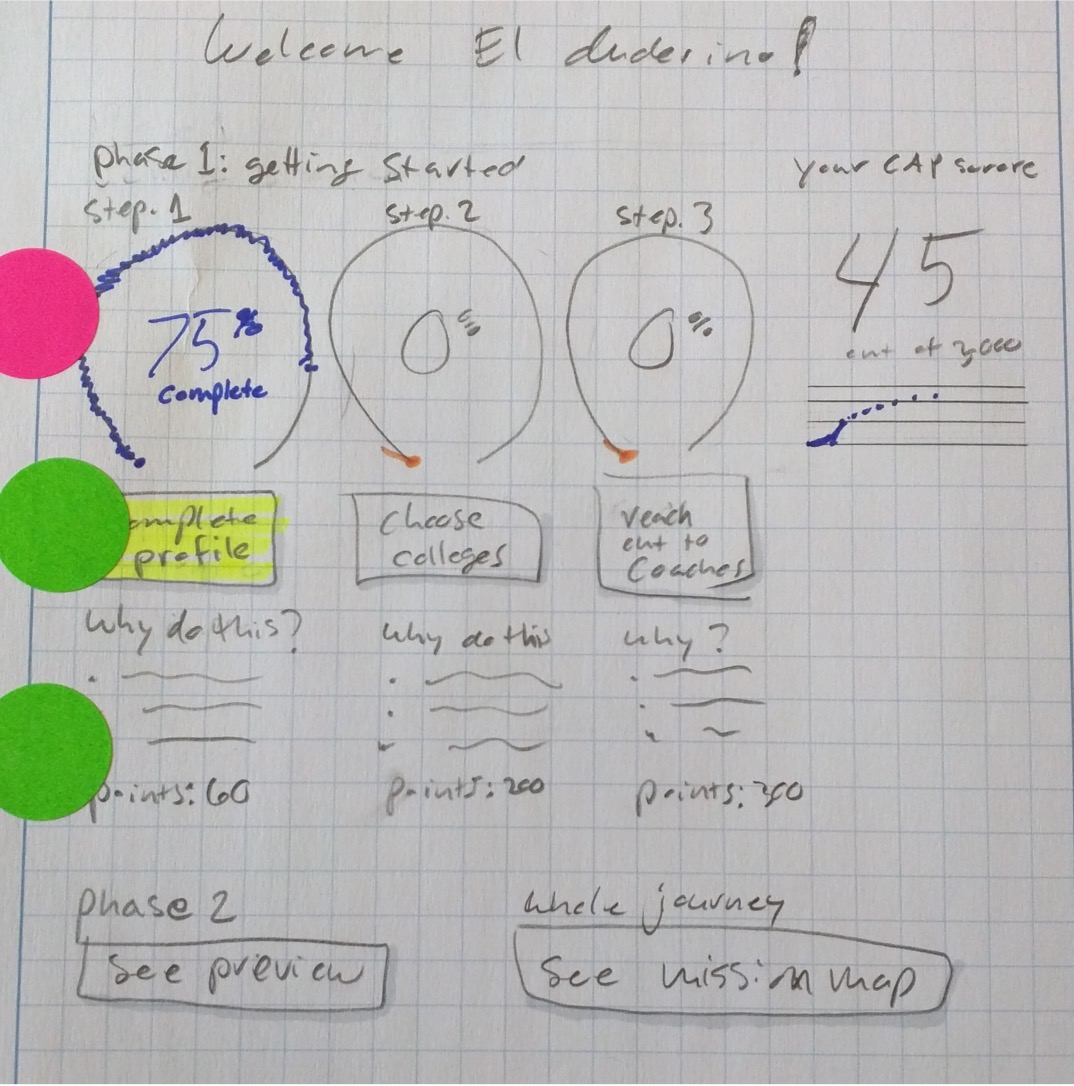 Welcome El duderino!
phase 1: getting started
your CAP scrore
step. 1
step. 2
step. 3
75% complete
0%
0%
45
out of 3,000
omplete profile
choose colleges
reach out to Coaches
why do this?
why do this
why?
points: 60
points: 200
points: 300
phase 2
whole journey
see preview
See mission map